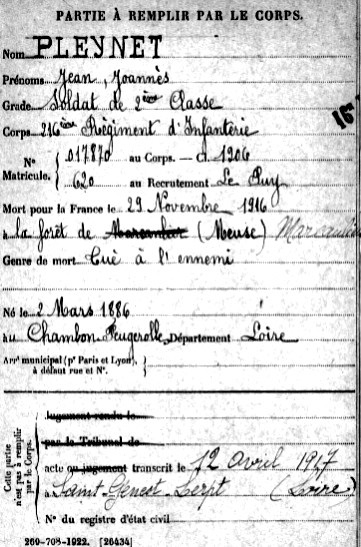 PARTIE À REMPLIR PAR LE CORPS.
Nom PLEYNET
Prénoms Jean, Joannès
Grade Soldat de 2ème Classe
Corps 216ème Régiment d'Infanterie
N° 017870 au Corps. — Cl. 1906
Matricule. 620 au Recrutement Le Puy
Mort pour la France le 29 Novembre 1916
à la forêt de (Meuse)
Genre de mort Tué à l'ennemi
Né le 2 Mars 1886
au Chambon Feugerolles Département Loire
Arrt municipal (pr Paris et Lyon),
à défaut rue et N°.
Cette partie
n'est pas à remplir
par le Corps.
jugement rendu le
par le Tribunal de
acte ou jugement transcrit le 12 avril 1917
à Saint-Genest-Lerpt (Loire)
N° du registre d'état civil
269-708-1922. [26434]